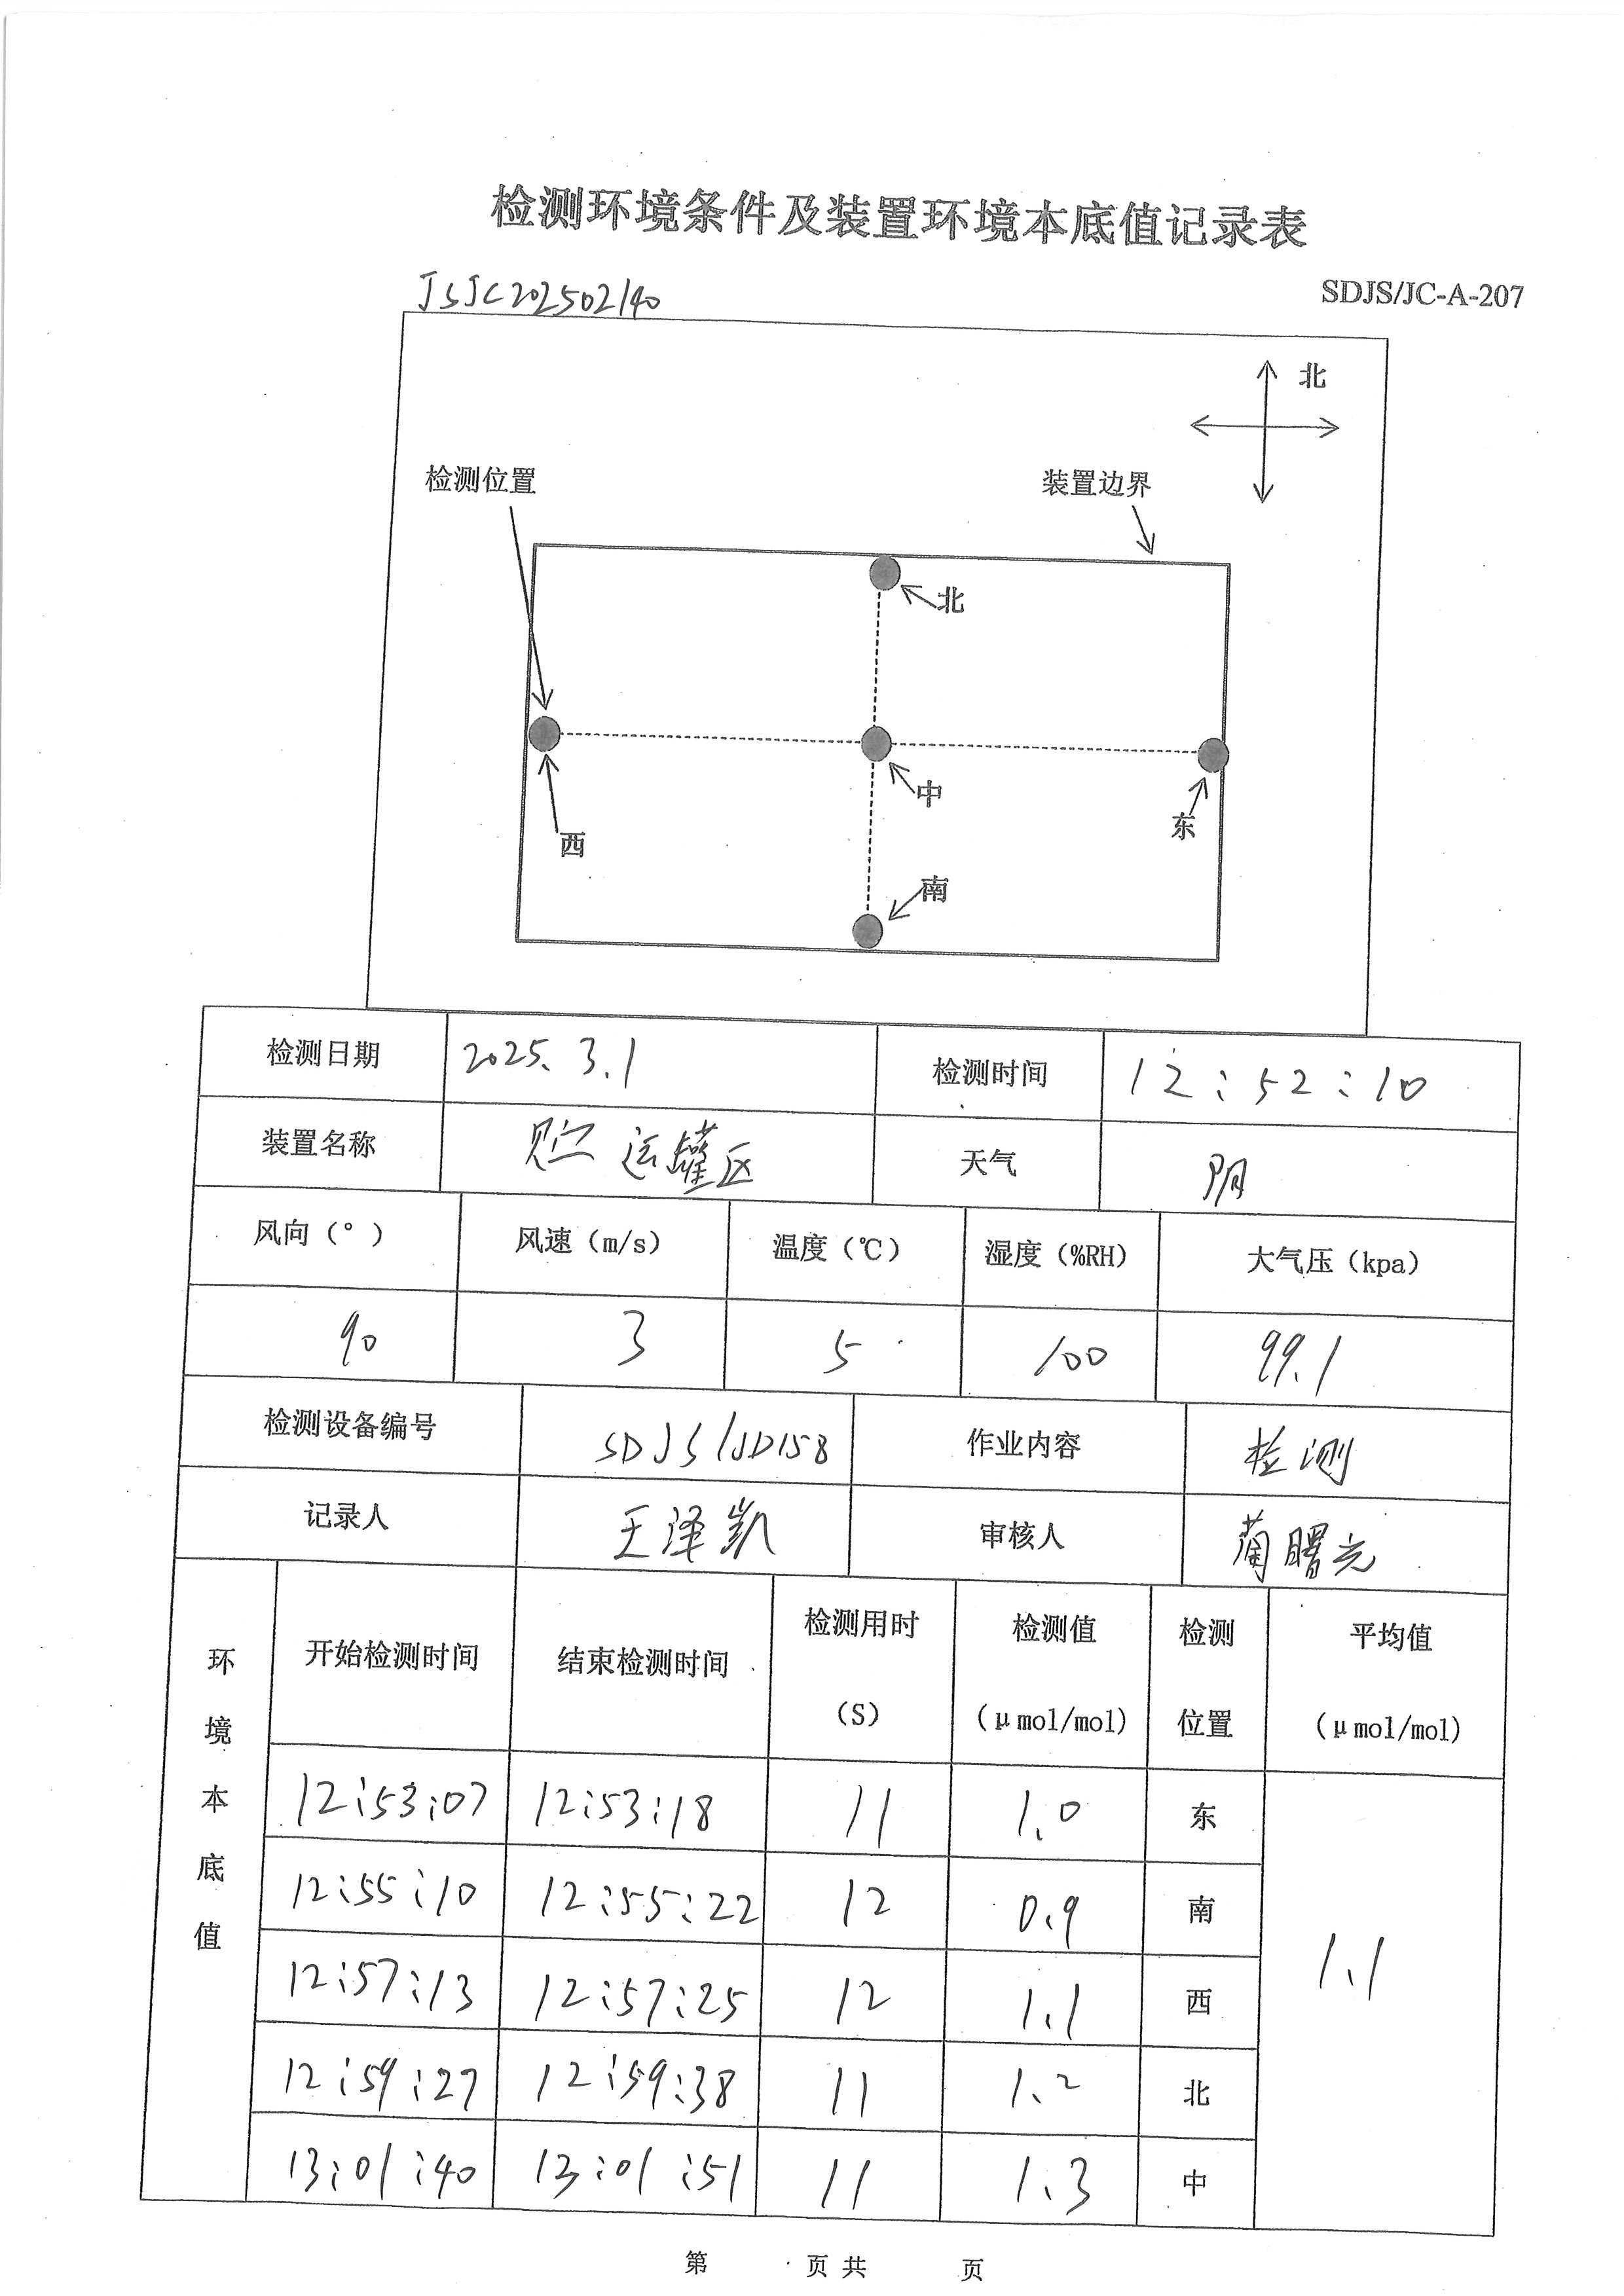 检测环境条件及装置环境本底值记录表
JSJC202502140 SDJS/JC-A-207
北
检测位置 装置边界
北
中
东
西
南
检测日期 2025.3.1 检测时间 12:52:10
装置名称 贮运罐区 天气 阴
风向（°） 风速（m/s） 温度（℃） 湿度（%RH） 大气压（kpa）
90 3 5 100 99.1
检测设备编号 SDJS/JD158 作业内容 检测
记录人 王泽凯 审核人 蔺曙光
环境本底值
开始检测时间 结束检测时间 检测用时（S） 检测值（μmol/mol） 检测位置 平均值（μmol/mol）
12:53:07 12:53:18 11 1.0 东
12:55:10 12:55:22 12 0.9 南
12:57:13 12:57:25 12 1.1 西 1.1
12:59:27 12:59:38 11 1.2 北
13:01:40 13:01:51 11 1.3 中
第 页共 页